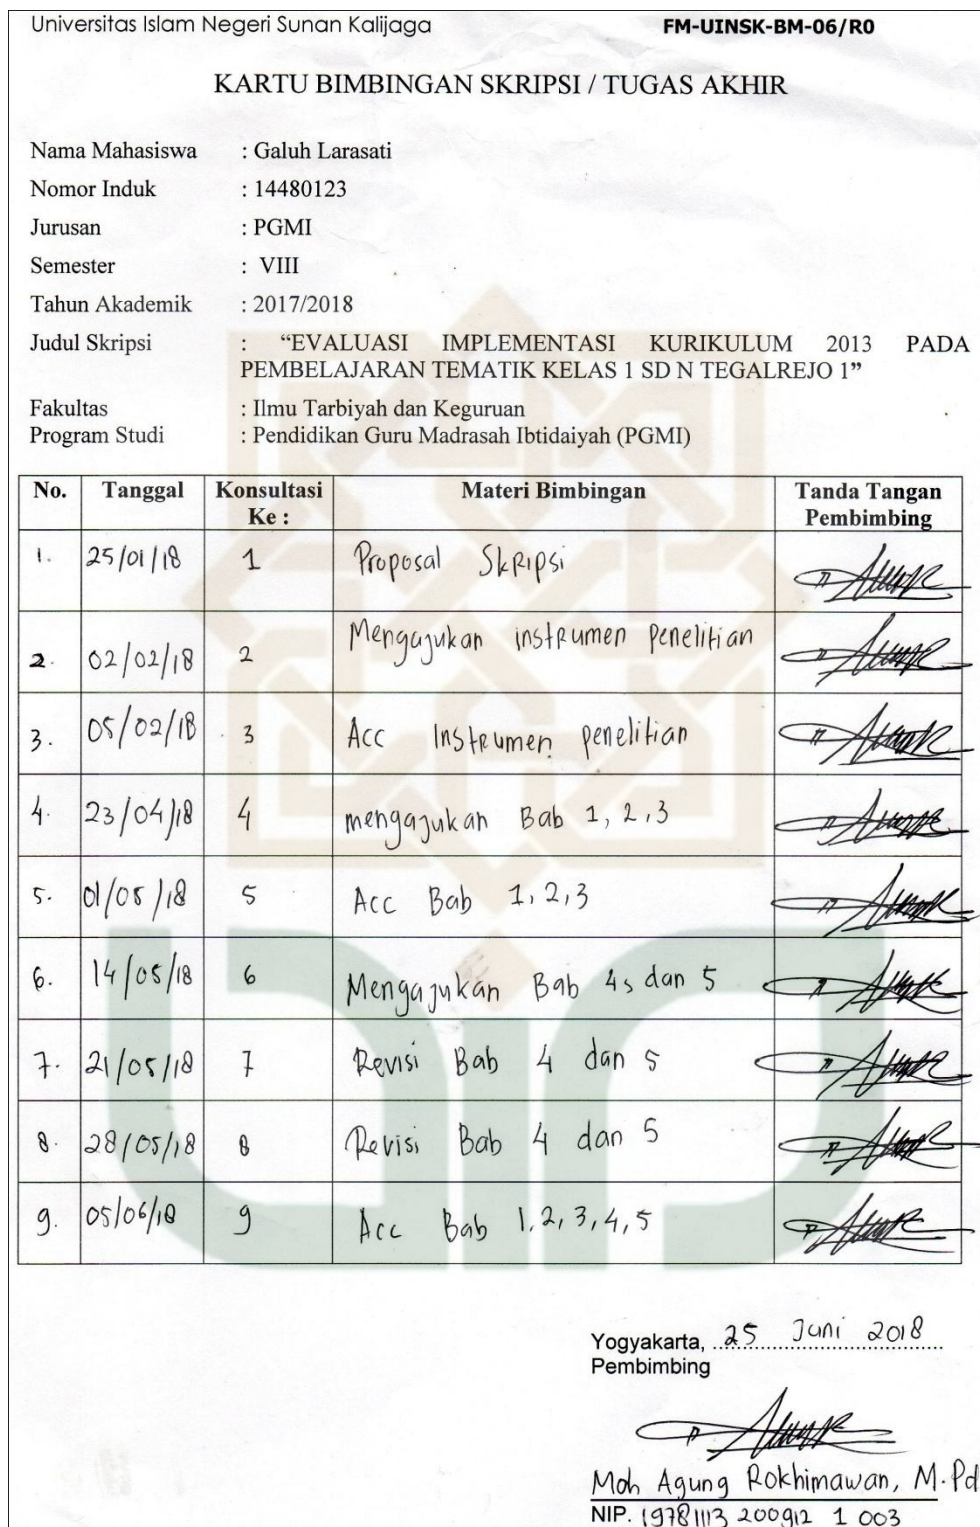 Universitas Islam Negeri Sunan Kalijaga FM-UINSK-BM-06/R0
KARTU BIMBINGAN SKRIPSI / TUGAS AKHIR
Nama Mahasiswa : Galuh Larasati
Nomor Induk : 14480123
Jurusan : PGMI
Semester : VIII
Tahun Akademik : 2017/2018
Judul Skripsi : “EVALUASI IMPLEMENTASI KURIKULUM 2013 PADA
PEMBELAJARAN TEMATIK KELAS 1 SD N TEGALREJO 1”
Fakultas : Ilmu Tarbiyah dan Keguruan
Program Studi : Pendidikan Guru Madrasah Ibtidaiyah (PGMI)
No. Tanggal Konsultasi Ke : Materi Bimbingan Tanda Tangan Pembimbing
1. 25/01/18 1 Proposal Skripsi
2. 02/02/18 2 Mengajukan instrumen penelitian
3. 05/02/18 3 Acc Instrumen penelitian
4. 23/04/18 4 mengajukan Bab 1, 2, 3
5. 01/05/18 5 Acc Bab 1, 2, 3
6. 14/05/18 6 Mengajukan Bab 4, dan 5
7. 21/05/18 7 Revisi Bab 4 dan 5
8. 28/05/18 8 Revisi Bab 4 dan 5
9. 05/06/18 9 Acc Bab 1, 2, 3, 4, 5
Yogyakarta, 25 Juni 2018
Pembimbing
Moh Agung Rokhimawan, M.Pd
NIP. 19781113 200912 1 003